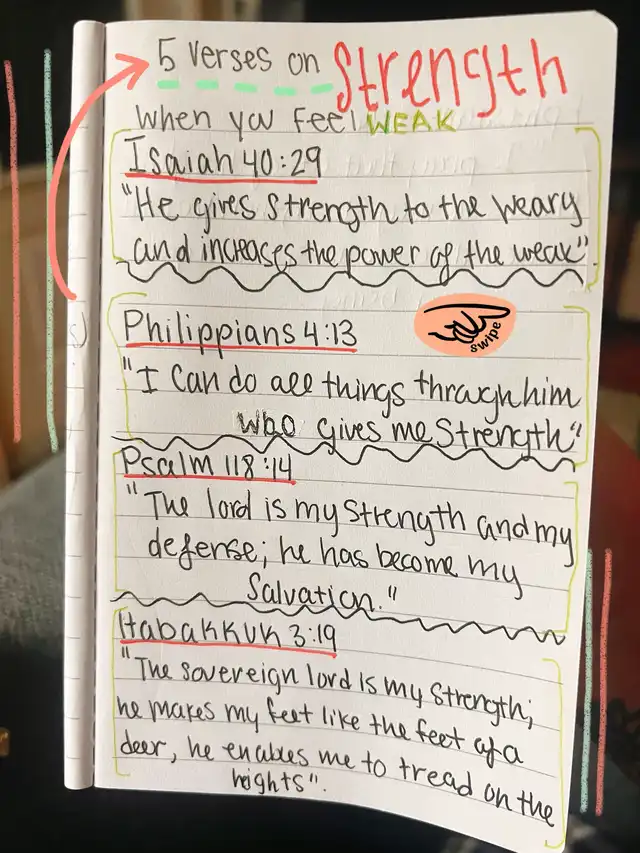 5 verses on Strength
When you Feel WEAK
Isaiah 40:29
"He gives strength to the weary
and increases the power of the weak".
Philippians 4:13
swipe
"I Can do all things through him
who gives me Strength"
Psalm 118:14
"The lord is my Strength and my
defense; he has become my
Salvation."
Habakkuk 3:19
"The sovereign lord is my Strength;
he makes my feet like the feet of a
deer, he enables me to tread on the
heights".